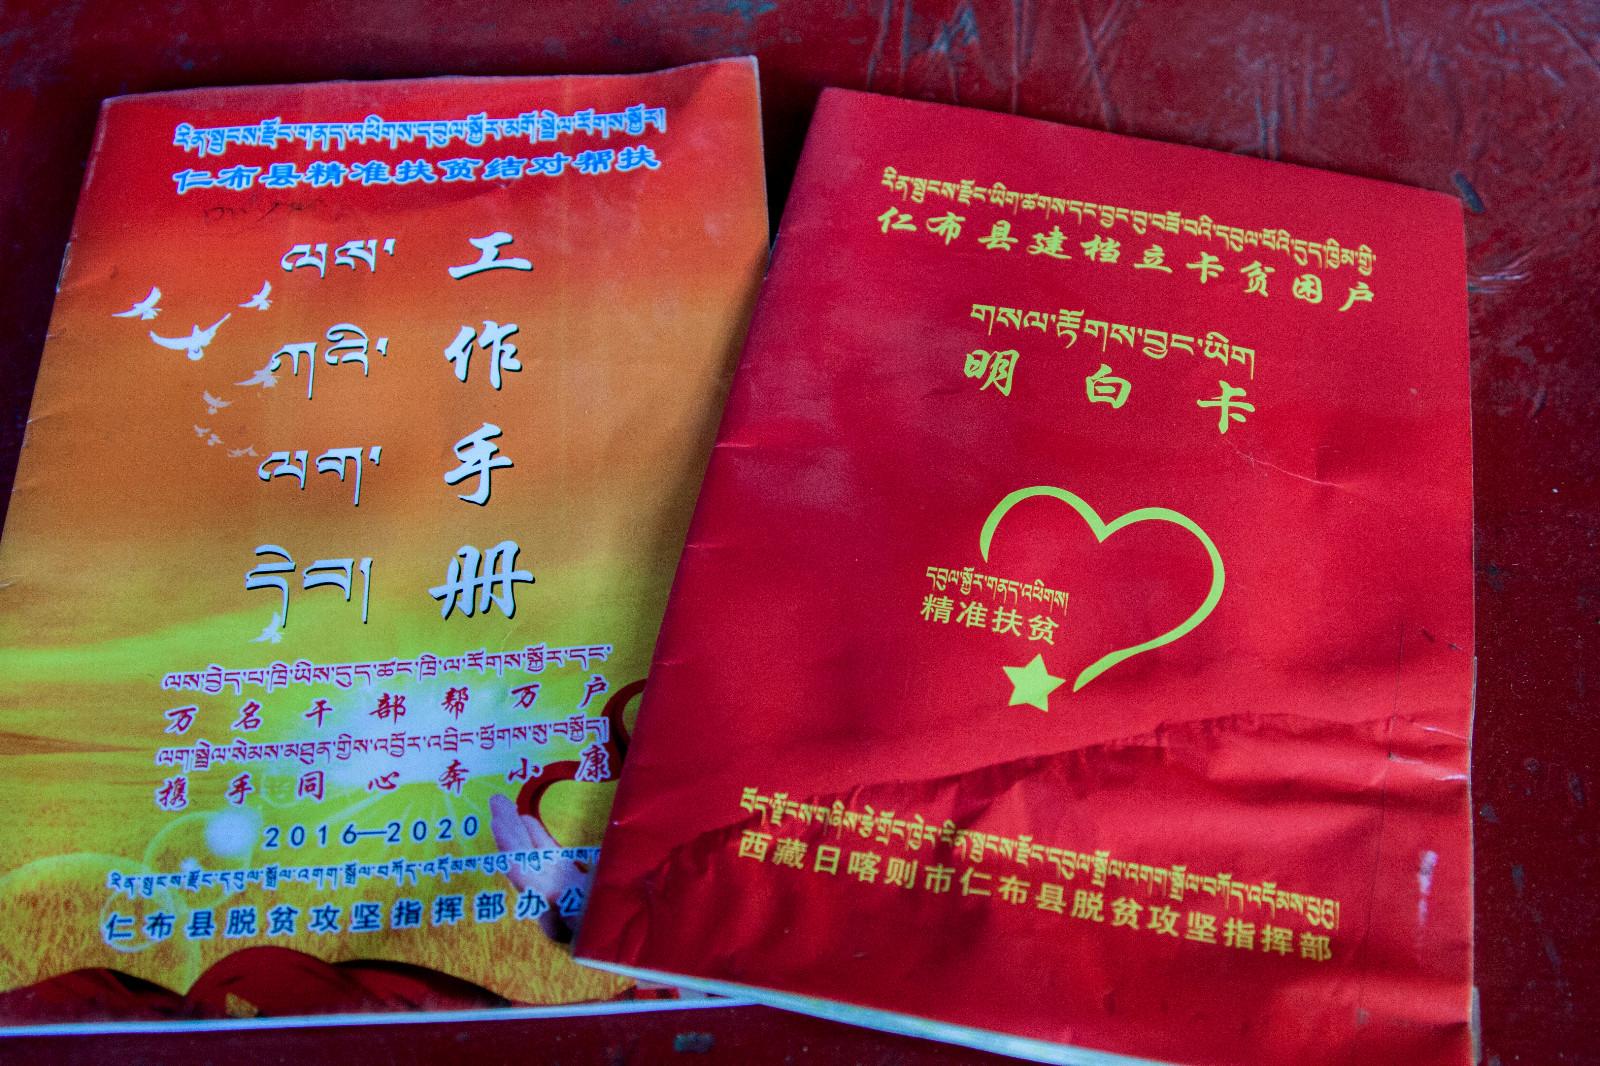 རིན་སྤུངས་རྫོང་གནད་འཕིགས་དབུལ་སྐྱོར་མགོ་སྤྲེལ་རོགས་སྐྱོར།
仁布县精准扶贫结对帮扶
ལས་ 工
ཀའི་ 作
ལག་ 手
དེབ། 册
ལས་བྱེད་པ་ཁྲི་ཡིས་དུད་ཚང་ཁྲི་ལ་རོགས་སྐྱོར་དང་
万名干部帮万户
ལག་སྦྲེལ་སེམས་མཐུན་གྱིས་འབྱོར་འབྲིང་ཕྱོགས་སུ་བསྐྱོད།
携手同心奔小康
2016—2020
རིན་སྤུངས་རྫོང་དབུལ་སྒྲོལ་འགག་སྒྲོལ་བཀོད་འདོམས་པུའུ་གཞུང་ལས་
仁布县脱贫攻坚指挥部办公
རིན་སྤུངས་རྫོང་ཡིག་ཚགས་དང་བྱང་བུ་བཟོ་བའི་དབུལ་པོའི་དུད་ཁྱིམ་གྱི་
仁布县建档立卡贫困户
གསལ་རྟོགས་བྱང་ཡིག
明白卡
དབུལ་སྐྱོར་གནད་འཕིགས།
精准扶贫
བོད་ལྗོངས་གཞིས་རྩེ་གྲོང་ཁྱེར་རིན་སྤུངས་རྫོང་དབུལ་སྒྲོལ་འགག་སྒྲོལ་བཀོད་འདོམས་པུའུ།
西藏日喀则市仁布县脱贫攻坚指挥部